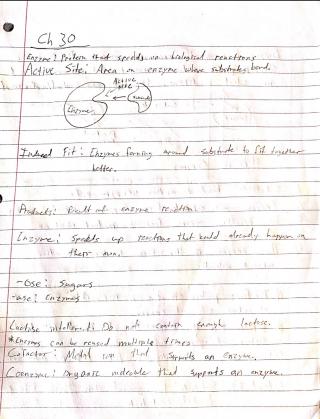 Ch 30
Enzyme: Protein that speeds up biological reactions
Active Site: Area on enzyme where substrates bond.
Active
site
Enzyme
Induced Fit: Enzymes forming around substrate to fit together
better.
Products: Result of enzyme reaction
Enzyme: Speeds up reactions that could already happen on
their own.
-ose: sugars
-ase: enzymes
Lactose intolerant: Do not contain enough lactase.
*Enzymes can be reused multiple times
Cofactor: Metal ion that supports an enzyme.
Coenzyme: Organic molecule that supports an enzyme.